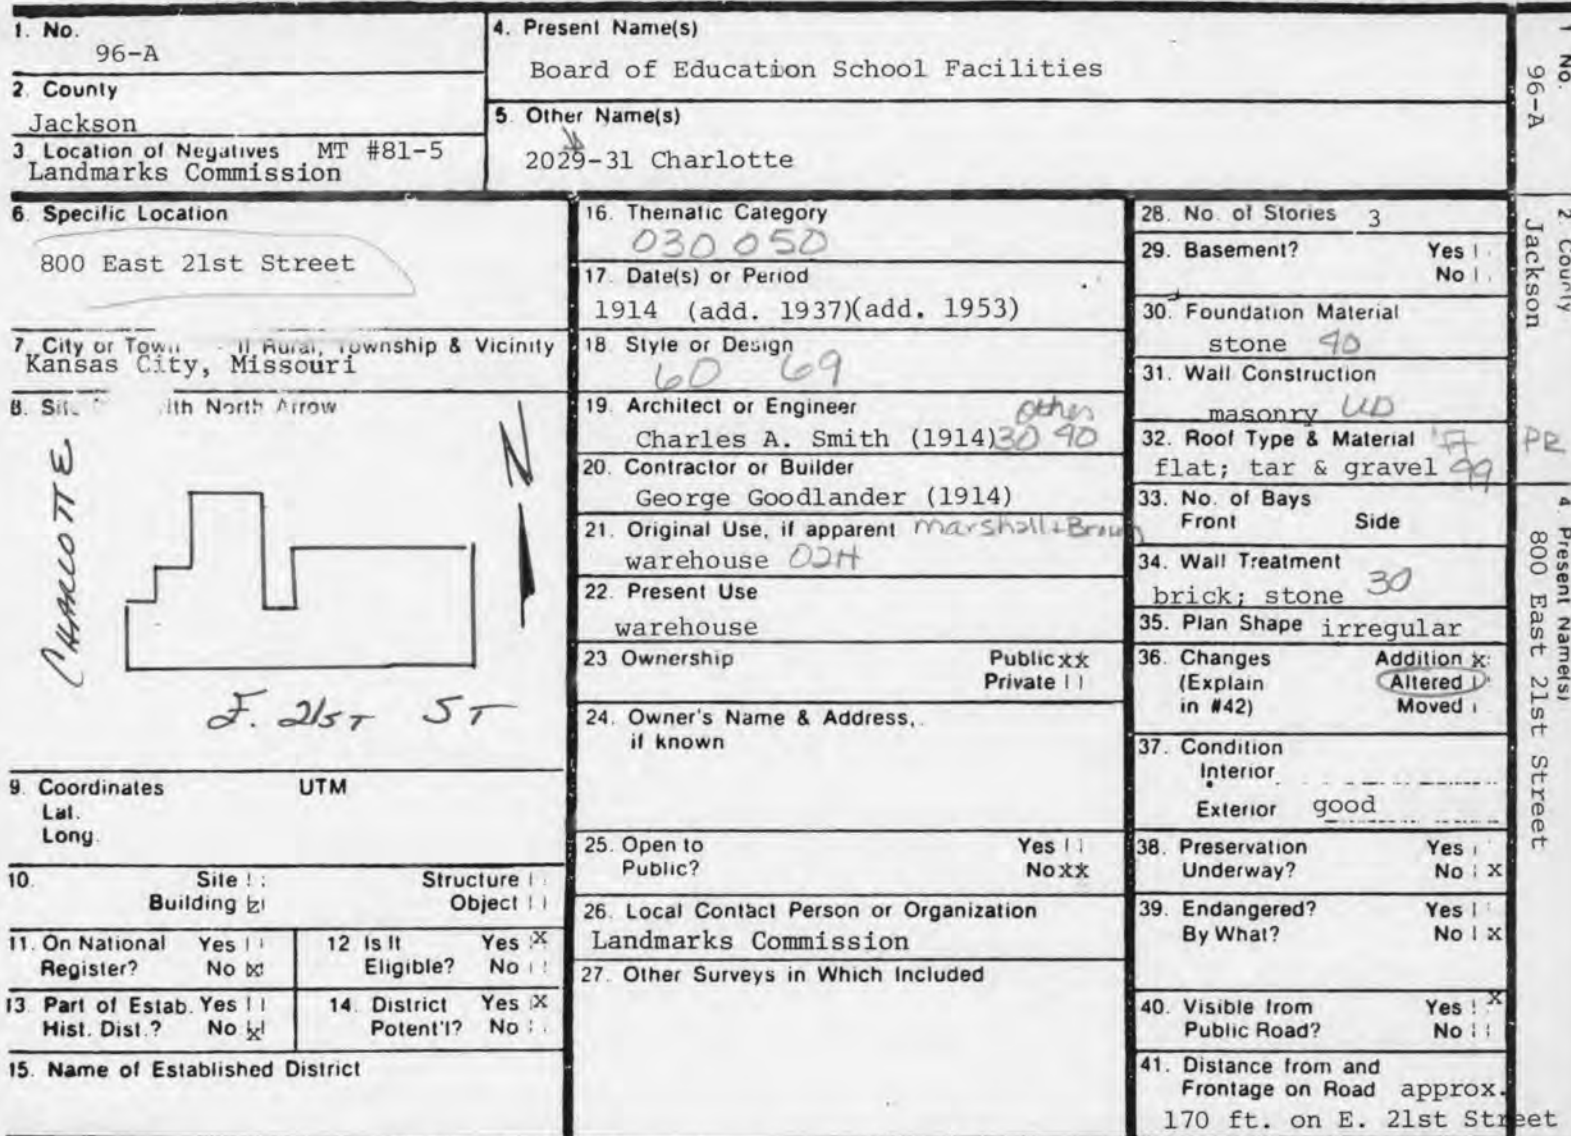 1. No.
96-A
2. County
Jackson
3 Location of Negatives MT #81-5
Landmarks Commission
4. Present Name(s)
Board of Education School Facilities
5. Other Name(s)
2029-31 Charlotte
6. Specific Location
800 East 21st Street
7. City or Town If Rural, Township & Vicinity
Kansas City, Missouri
8. Site with North Arrow
CHARLOTTE
N
E. 21ST ST
9. Coordinates UTM
Lat.
Long.
10. Site Structure
Building Object
11. On National Yes
Register? No x
12 Is It Yes X
Eligible? No
13. Part of Estab. Yes
Hist. Dist.? No x
14. District Yes X
Potent'l? No
15. Name of Established District
16. Thematic Category
030 050
17. Date(s) or Period
1914 (add. 1937)(add. 1953)
18. Style or Design
60 69
19. Architect or Engineer other
Charles A. Smith (1914) 30 40
20. Contractor or Builder
George Goodlander (1914)
21. Original Use, if apparent Marshall & Brown
warehouse 02H
22. Present Use
warehouse
23 Ownership Public xx
Private
24. Owner's Name & Address,
if known
25. Open to Yes
Public? No xx
26. Local Contact Person or Organization
Landmarks Commission
27. Other Surveys in Which Included
28. No. of Stories 3
29. Basement? Yes
No
30. Foundation Material
stone 40
31. Wall Construction
masonry UD
32. Roof Type & Material
flat; tar & gravel 99
33. No. of Bays
Front Side
34. Wall Treatment
brick; stone 30
35. Plan Shape irregular
36. Changes Addition x
(Explain Altered
in #42) Moved
37. Condition
Interior
Exterior good
38. Preservation Yes
Underway? No X
39. Endangered? Yes
By What? No X
40. Visible from Yes X
Public Road? No
41. Distance from and
Frontage on Road approx.
170 ft. on E. 21st Street
1 No.
96-A
2. County
Jackson
PR
4 Present Name(s)
800 East 21st Street